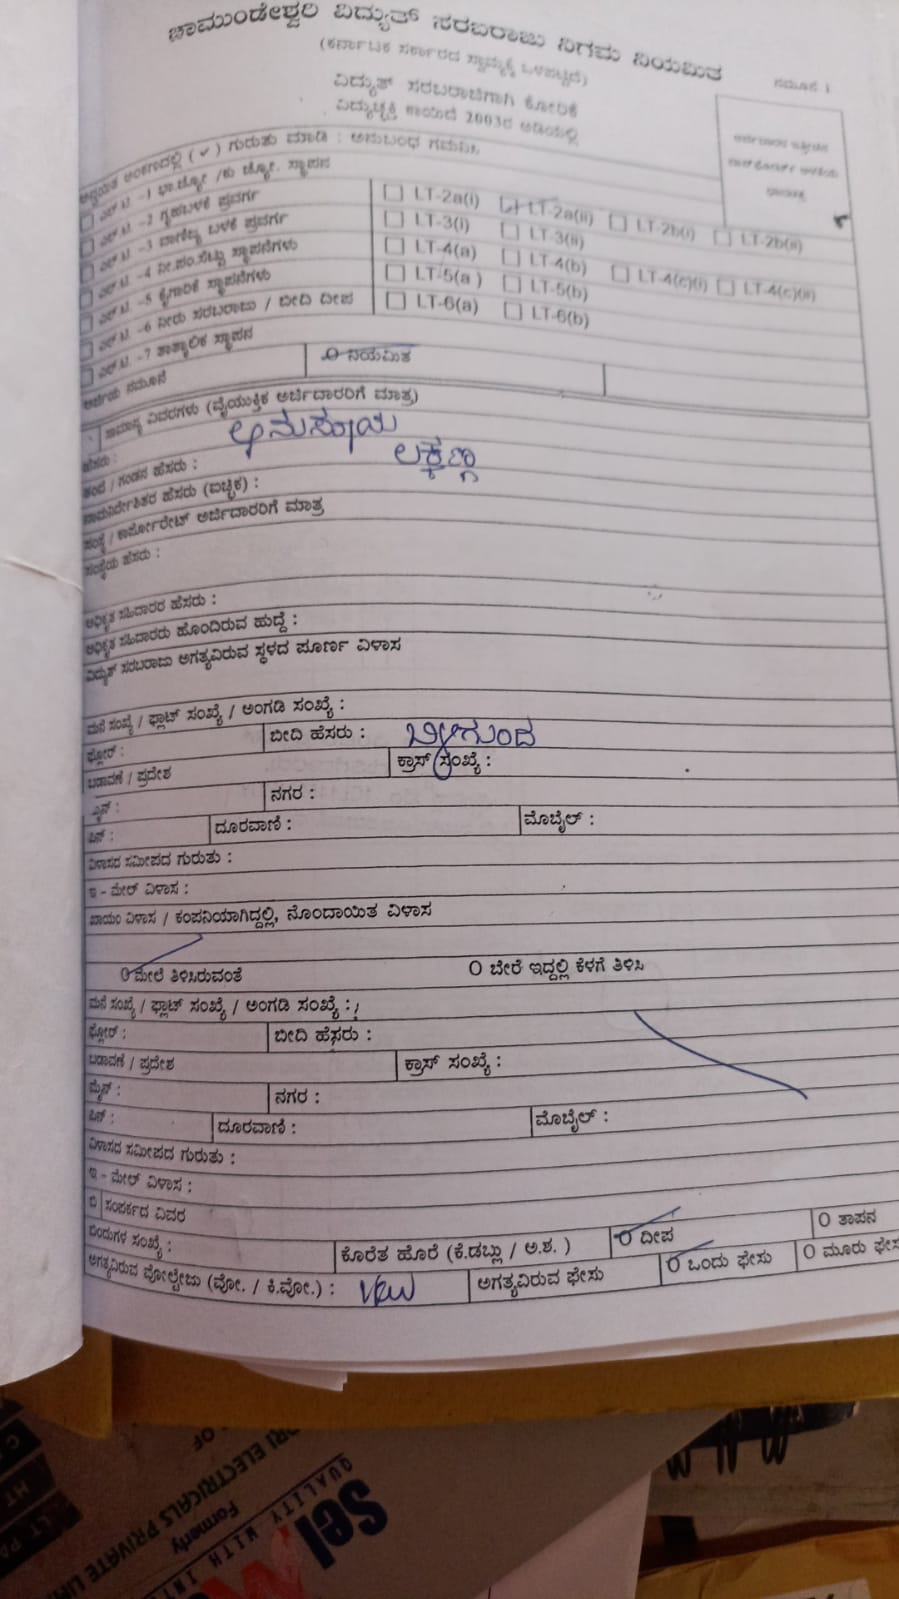 ಚಾಮುಂಡೇಶ್ವರಿ ವಿದ್ಯುತ್ ಸರಬರಾಜು ನಿಗಮ ನಿಯಮಿತ
(ಕರ್ನಾಟಕ ಸರ್ಕಾರದ ಸ್ವಾಮ್ಯಕ್ಕೆ ಒಳಪಟ್ಟಿದೆ)
ನಮೂನೆ 1
ವಿದ್ಯುತ್ ಸರಬರಾಜಿಗಾಗಿ ಕೋರಿಕೆ
ವಿದ್ಯುಚ್ಛಕ್ತಿ ಕಾಯಿದೆ 2003ರ ಅಡಿಯಲ್ಲಿ
ಅಂಕಣದಲ್ಲಿ (✓) ಗುರುತು ಮಾಡಿ : ಅನುಬಂಧ ಗಮನಿಸಿ
ಎಲ್.ಟಿ. -1 ಭಾ.ಜ್ಯೋ /ಕು ಜ್ಯೋ. ಸ್ಥಾಪನ
ಎಲ್.ಟಿ. -2 ಗೃಹಬಳಕೆ ಪ್ರವರ್ಗ LT-2a(i) LT-2a(ii) LT-2b(i) LT-2b(ii)
ಎಲ್.ಟಿ. -3 ವಾಣಿಜ್ಯ ಬಳಕೆ ಪ್ರವರ್ಗ LT-3(i) LT-3(ii)
ಎಲ್.ಟಿ. -4 ನೀ.ಪಂ.ಸೆಟ್ಟು ಸ್ಥಾಪನೆಗಳು LT-4(a) LT-4(b) LT-4(c)(i) LT-4(c)(ii)
ಎಲ್.ಟಿ. -5 ಕೈಗಾರಿಕೆ ಸ್ಥಾಪನೆಗಳು LT-5(a) LT-5(b)
ಎಲ್.ಟಿ. -6 ನೀರು ಸರಬರಾಜು / ಬೀದಿ ದೀಪ LT-6(a) LT-6(b)
ಎಲ್.ಟಿ. -7 ತಾತ್ಕಾಲಿಕ ಸ್ಥಾಪನ
ಅರ್ಜಿಯ ನಮೂನೆ O ನಿಯಮಿತ
ಸಾಮಾನ್ಯ ವಿವರಗಳು (ವೈಯುಕ್ತಿಕ ಅರ್ಜಿದಾರರಿಗೆ ಮಾತ್ರ)
ಹೆಸರು : ಅನುಸೂಯ
ತಂದೆ / ಗಂಡನ ಹೆಸರು : ಲಕ್ಕಣ್ಣ
ನಾಮನಿರ್ದೇಶಿತರ ಹೆಸರು (ಐಚ್ಛಿಕ) :
ಸಂಸ್ಥೆ / ಕಾರ್ಪೋರೇಟ್ ಅರ್ಜಿದಾರರಿಗೆ ಮಾತ್ರ
ಸಂಸ್ಥೆಯ ಹೆಸರು :
ಅಧಿಕೃತ ಸಹಿದಾರರ ಹೆಸರು :
ಅಧಿಕೃತ ಸಹಿದಾರರು ಹೊಂದಿರುವ ಹುದ್ದೆ :
ವಿದ್ಯುತ್ ಸರಬರಾಜು ಅಗತ್ಯವಿರುವ ಸ್ಥಳದ ಪೂರ್ಣ ವಿಳಾಸ
ಮನೆ ಸಂಖ್ಯೆ / ಫ್ಲಾಟ್ ಸಂಖ್ಯೆ / ಅಂಗಡಿ ಸಂಖ್ಯೆ :
ಫ್ಲೋರ್ : ಬೀದಿ ಹೆಸರು :
ಬಡಾವಣೆ / ಪ್ರದೇಶ ಕ್ರಾಸ್ ಸಂಖ್ಯೆ :
ನಗರ :
ಪಿನ್ : ದೂರವಾಣಿ : ಮೊಬೈಲ್ :
ವಿಳಾಸದ ಸಮೀಪದ ಗುರುತು :
ಇ - ಮೇಲ್ ವಿಳಾಸ :
ಖಾಯಂ ವಿಳಾಸ / ಕಂಪನಿಯಾಗಿದ್ದಲ್ಲಿ, ನೊಂದಾಯಿತ ವಿಳಾಸ
O ಮೇಲೆ ತಿಳಿಸಿರುವಂತೆ O ಬೇರೆ ಇದ್ದಲ್ಲಿ ಕೆಳಗೆ ತಿಳಿಸಿ
ಮನೆ ಸಂಖ್ಯೆ / ಫ್ಲಾಟ್ ಸಂಖ್ಯೆ / ಅಂಗಡಿ ಸಂಖ್ಯೆ :
ಫ್ಲೋರ್ : ಬೀದಿ ಹೆಸರು :
ಬಡಾವಣೆ / ಪ್ರದೇಶ ಕ್ರಾಸ್ ಸಂಖ್ಯೆ :
ಮೈನ್ : ನಗರ :
ಪಿನ್ : ದೂರವಾಣಿ : ಮೊಬೈಲ್ :
ವಿಳಾಸದ ಸಮೀಪದ ಗುರುತು :
ಇ - ಮೇಲ್ ವಿಳಾಸ :
ಬಿ ಸಂಪರ್ಕದ ವಿವರ
ಬಿಂದುಗಳ ಸಂಖ್ಯೆ : ಕೊರೆತ ಹೊರೆ (ಕೆ.ಡಬ್ಲು / ಅ.ಶ. ) O ದೀಪ O ತಾಪನ
ಅಗತ್ಯವಿರುವ ವೋಲ್ಟೇಜು (ವೋ. / ಕಿ.ವೋ.) : ಅಗತ್ಯವಿರುವ ಫೇಸು O ಒಂದು ಫೇಸು O ಮೂರು ಫೇಸು
ELECTRICALS PRIVATE
Formerly
QUALITY WITH